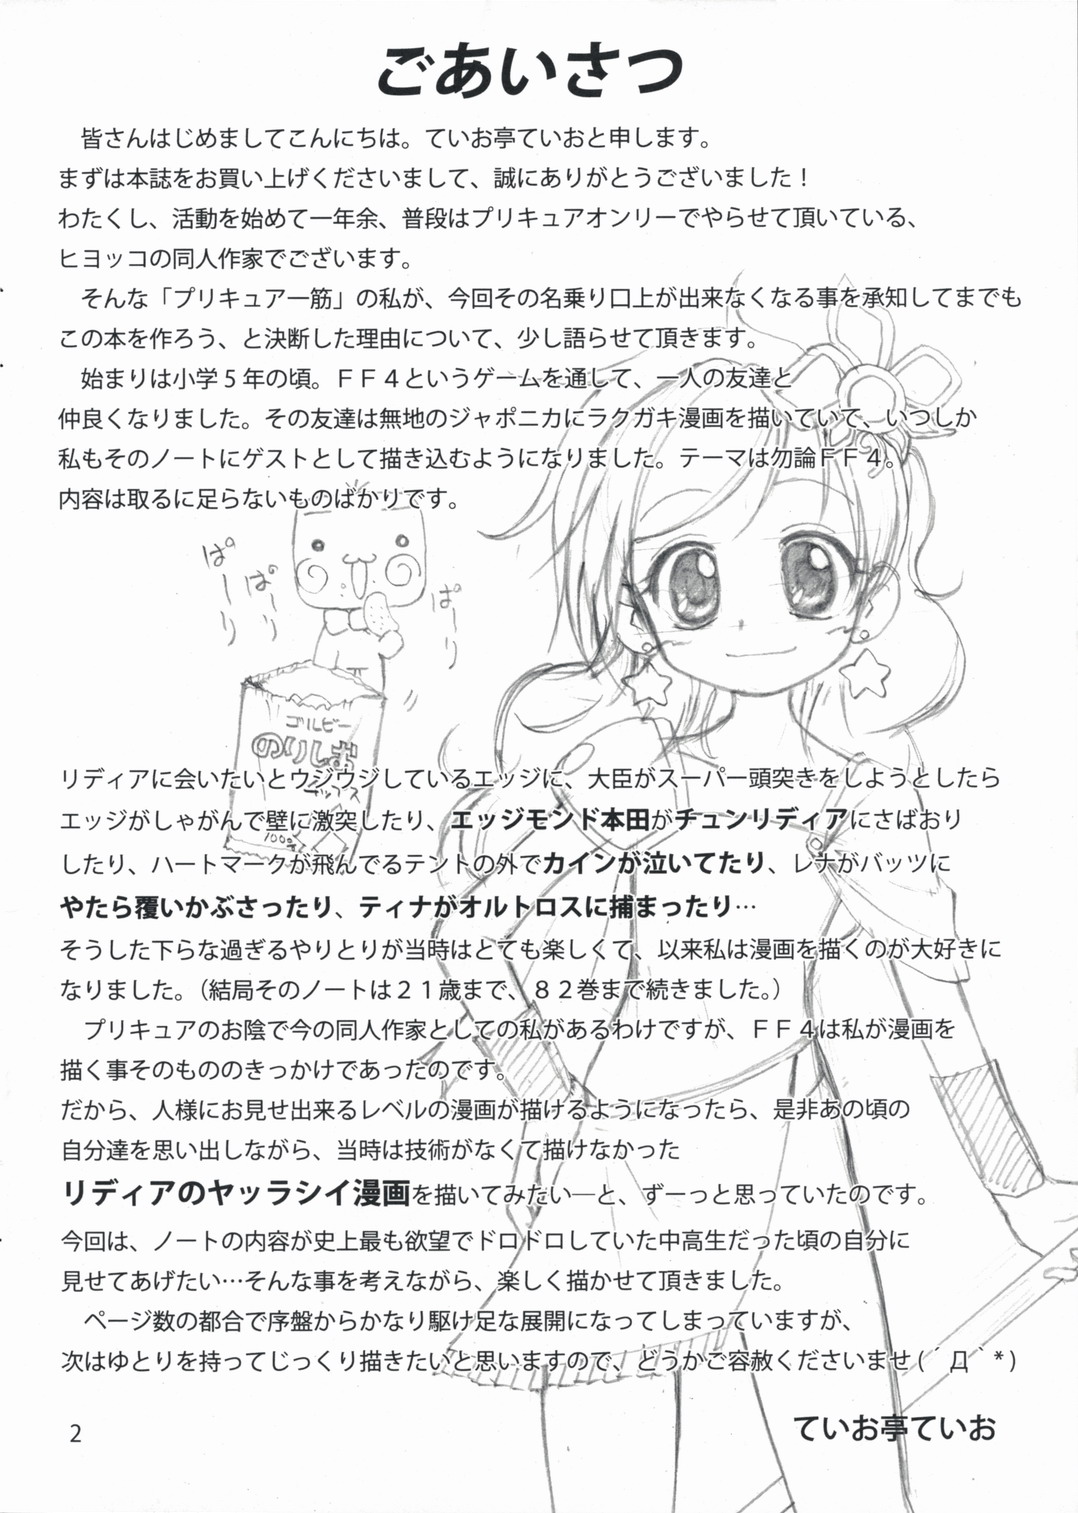 ごあいさつ
皆さんはじめましてこんにちは。ていお亭ていおと申します。
まずは本誌をお買い上げくださいまして、誠にありがとうございました!
わたくし、活動を始めて一年余、普段はプリキュアオンリーでやらせて頂いている、
ヒヨッコの同人作家でございます。
そんな「プリキュア一筋」の私が、今回その名乗り口上が出来なくなる事を承知してまでも
この本を作ろう、と決断した理由について、少し語らせて頂きます。
始まりは小学5年の頃。FF4というゲームを通して、一人の友達と
仲良くなりました。その友達は無地のジャポニカにラクガキ漫画を描いていて、いつしか
私もそのノートにゲストとして描き込むようになりました。テーマは勿論FF4。
内容は取るに足らないものばかりです。
ぱーり
ぱーり
ぱーり
ゴルビー
のりしお
チップス
100g
リディアに会いたいとウジウジしているエッジに、大臣がスーパー頭突きをしようとしたら
エッジがしゃがんで壁に激突したり、エッジモンド本田がチュンリディアにさばおり
したり、ハートマークが飛んでるテントの外でカインが泣いてたり、レナがバッツに
やたら覆いかぶさったり、ティナがオルトロスに捕まったり…
そうした下らな過ぎるやりとりが当時はとても楽しくて、以来私は漫画を描くのが大好きに
なりました。(結局そのノートは21歳まで、82巻まで続きました。)
プリキュアのお陰で今の同人作家としての私があるわけですが、FF4は私が漫画を
描く事そのもののきっかけであったのです。
だから、人様にお見せ出来るレベルの漫画が描けるようになったら、是非あの頃の
自分達を思い出しながら、当時は技術がなくて描けなかった
リディアのヤッラシイ漫画を描いてみたい―と、ずーっと思っていたのです。
今回は、ノートの内容が史上最も欲望でドロドロしていた中高生だった頃の自分に
見せてあげたい…そんな事を考えながら、楽しく描かせて頂きました。
ページ数の都合で序盤からかなり駆け足な展開になってしまっていますが、
次はゆとりを持ってじっくり描きたいと思いますので、どうかご容赦くださいませ(´Д`*)
ていお亭ていお
2